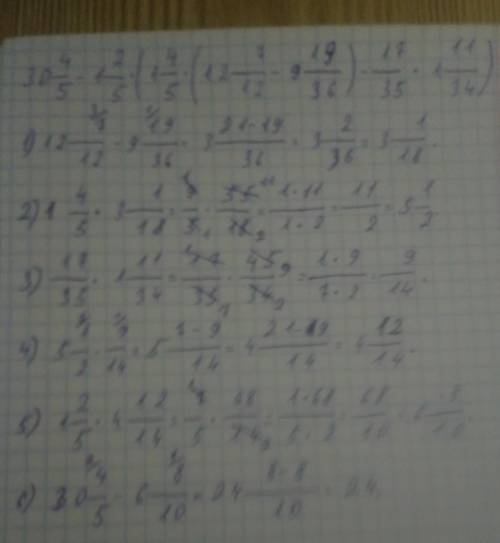 30 4/5 - 1 2/5 · (1 4/5 · (12 7/12 - 9 19/36) - 17/35 · 1 11/34)
1) 12 7/12 - 9 19/36 = 3 21-19/36 = 3 2/36 = 3 1/18.
2) 1 4/5 · 3 1/18 = 9/5 · 55/18 = 1·11/1·2 = 11/2 = 5 1/2.
3) 17/35 · 1 11/34 = 17/35 · 45/34 = 1·9/7·2 = 9/14.
4) 5 1/2 - 9/14 = 5 7-9/14 = 4 21-9/14 = 4 12/14.
5) 1 2/5 · 4 12/14 = 7/5 · 68/14 = 1·68/5·2 = 68/10 = 6 8/10.
6) 30 4/5 - 6 8/10 = 24 8-8/10 = 24.